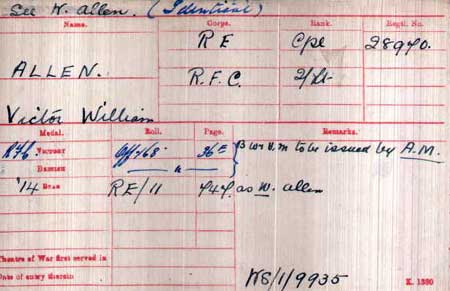 See W. Allen. (Identical)
Name. Corps. Rank. Regtl. No.
R E Cpl 28940.
ALLEN. R.F.C. 2/Lt
Victor William
Medal. Roll. Page. Remarks.
Victory Off/68 36E B W V. M to be issued by A.M.
British "
'14 Star RE/11 747. as W. Allen
Theatre of War first served in
Date of entry therein
WS/1/9935 K. 1380